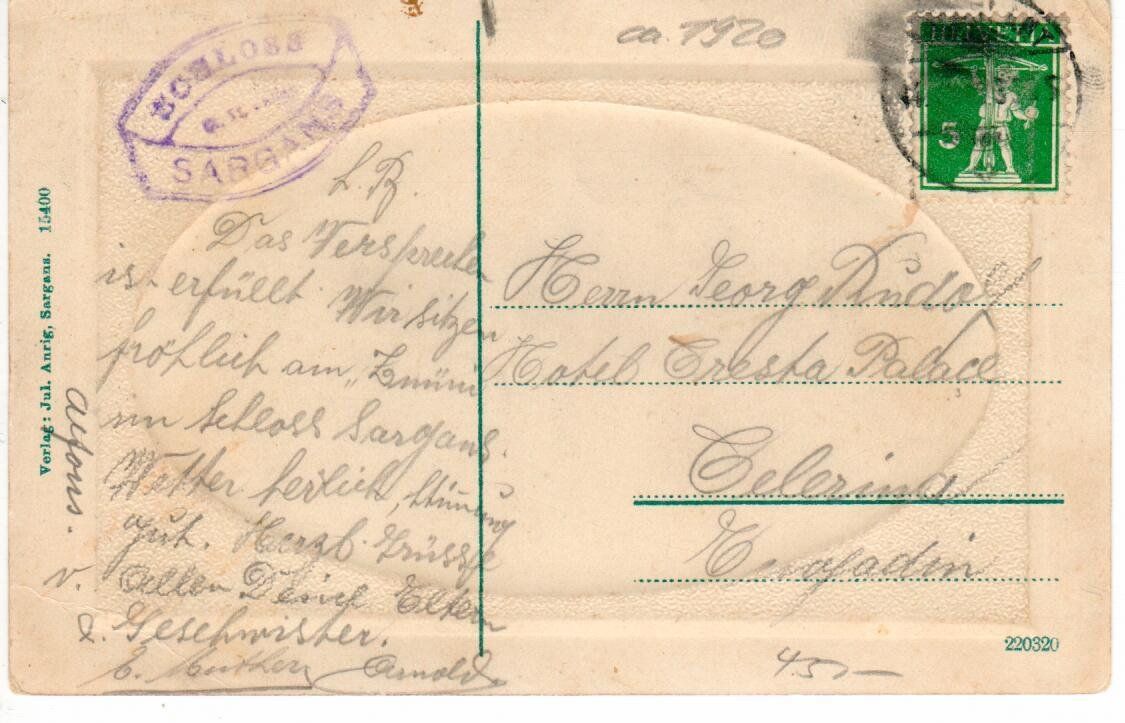 SCHLOSS
SARGANS
ca. 1920
HELVETIA
5
L. R.
Das Versprechen
ist erfüllt. Wir sitzen
fröhlich am „Zmüni
im Schloss Sargans.
Wetter herlich, Stimung
gut. Herzl. Grüsse
v. allen Eltern
& Geschwister.
Arnold
Alfons.
Herrn Georg Rudolf
Hotel Cresta Palace
Celerina
Engadin
Verlag: Jul. Anrig, Sargans. 15400
220320
4.50 —